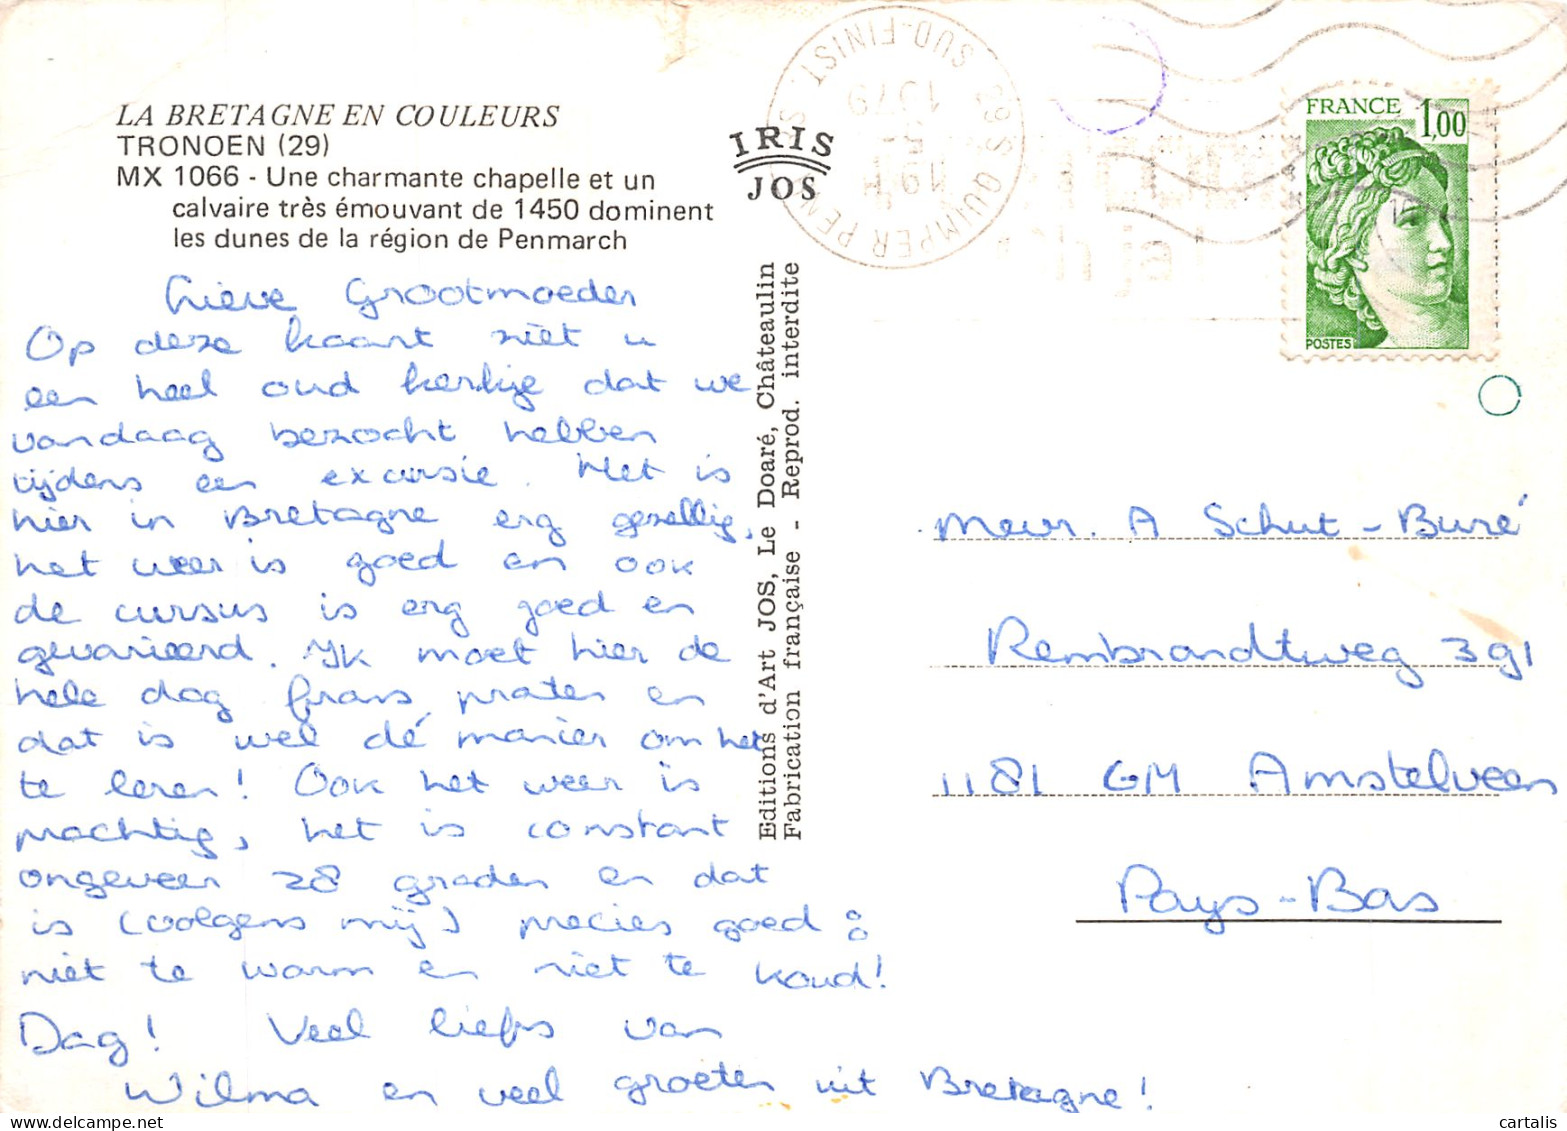 LA BRETAGNE EN COULEURS
TRONOEN (29)
MX 1066 - Une charmante chapelle et un
calvaire très émouvant de 1450 dominent
les dunes de la région de Penmarch
Lieve Grootmoeder
Op deze kaart ziet u
een heel oud kerkje dat we
vandaag bezocht hebben
tijdens een excursie. Het is
hier in Bretagne erg gezellig,
het weer is goed en ook
de cursus is erg goed en
gevarieerd. Ik moet hier de
hele dag frans praten en
dat is wel dé manier om het
te leren! Ook het weer is
prachtig, het is constant
ongeveer 28 graden en dat
is (volgens mij) precies goed:
niet te warm en niet te koud!
Dag! Veel liefs van
Wilma en veel groeten uit Bretagne!
IRIS
JOS
Editions d'Art JOS, Le Doaré, Châteaulin
Fabrication française - Reprod. interdite
SUD-FINIST.
1979
QUIMPER
FRANCE 1,00
POSTES
Mevr. A Schut-Buré
Rembrandtweg 391
1181 GM Amstelveen
Pays-Bas
cartalis